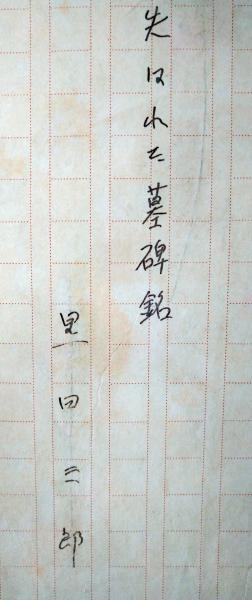 失はれた墓碑銘
黒田三郎